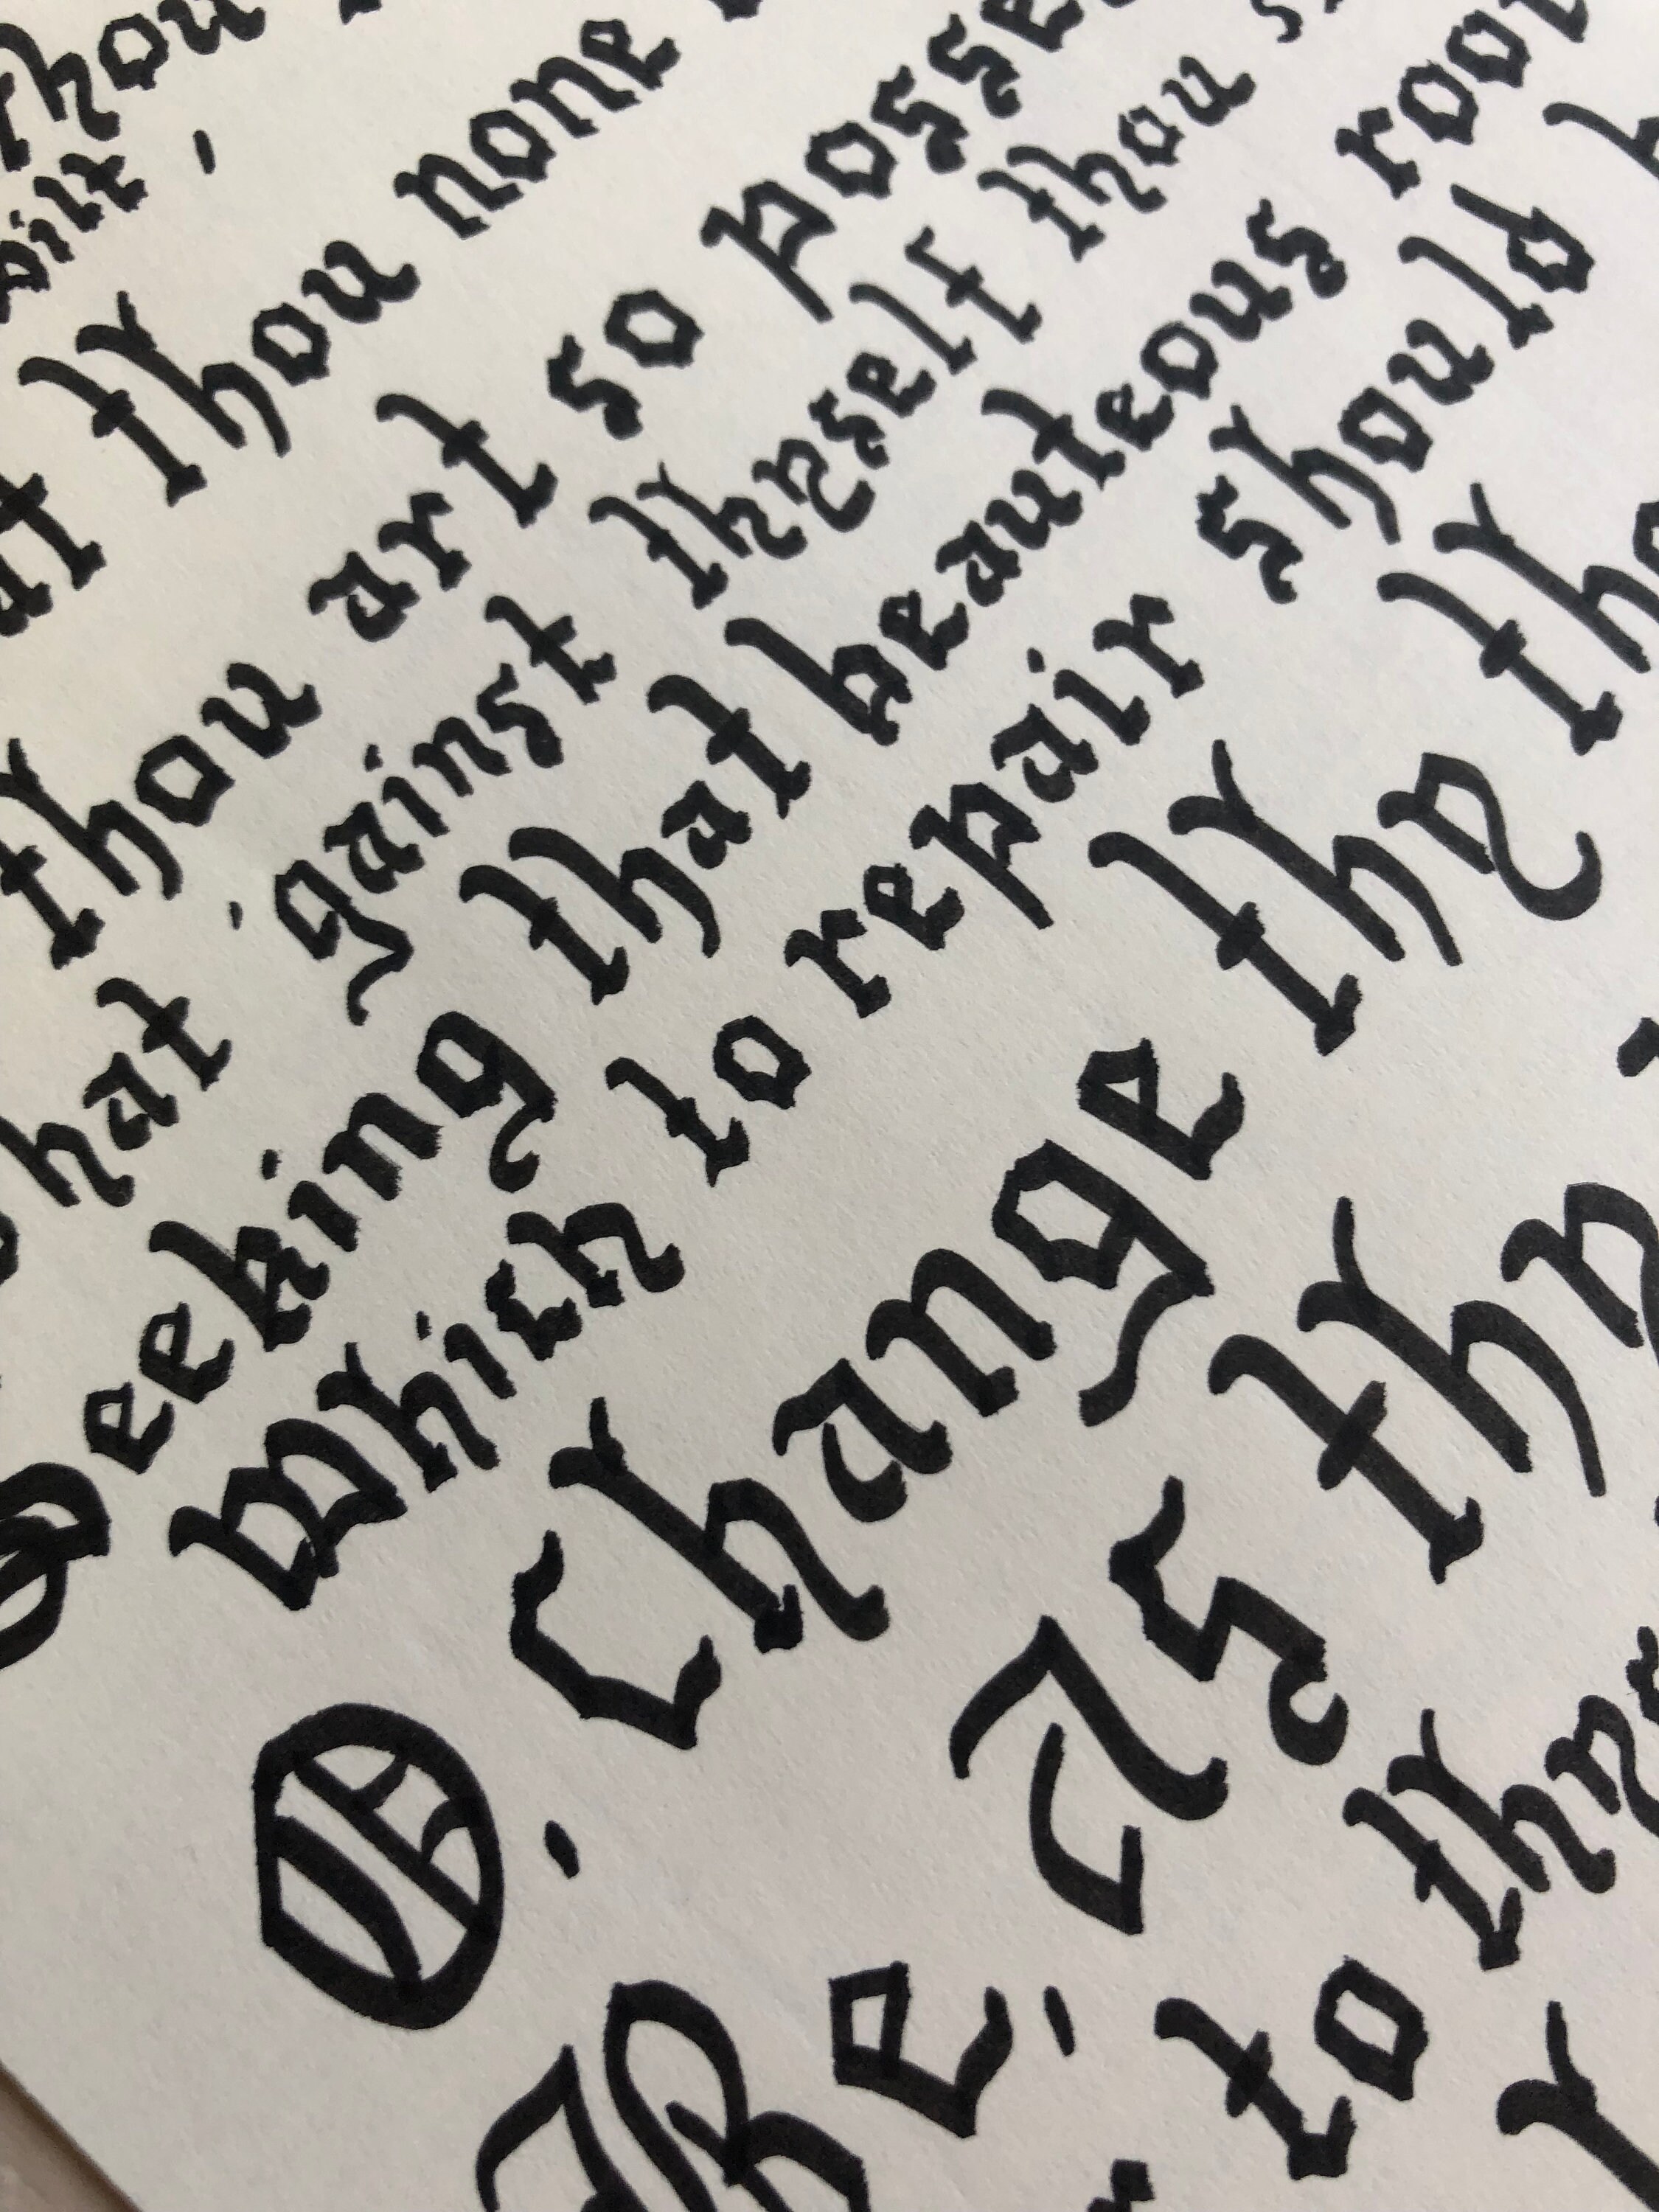 thou
wilt,
at thou none
thou art so posse
hat 'gainst thyself thou s
Seeking that beauteous roo
Which to repair should
O, change thy tho
Be, as thy
to thys